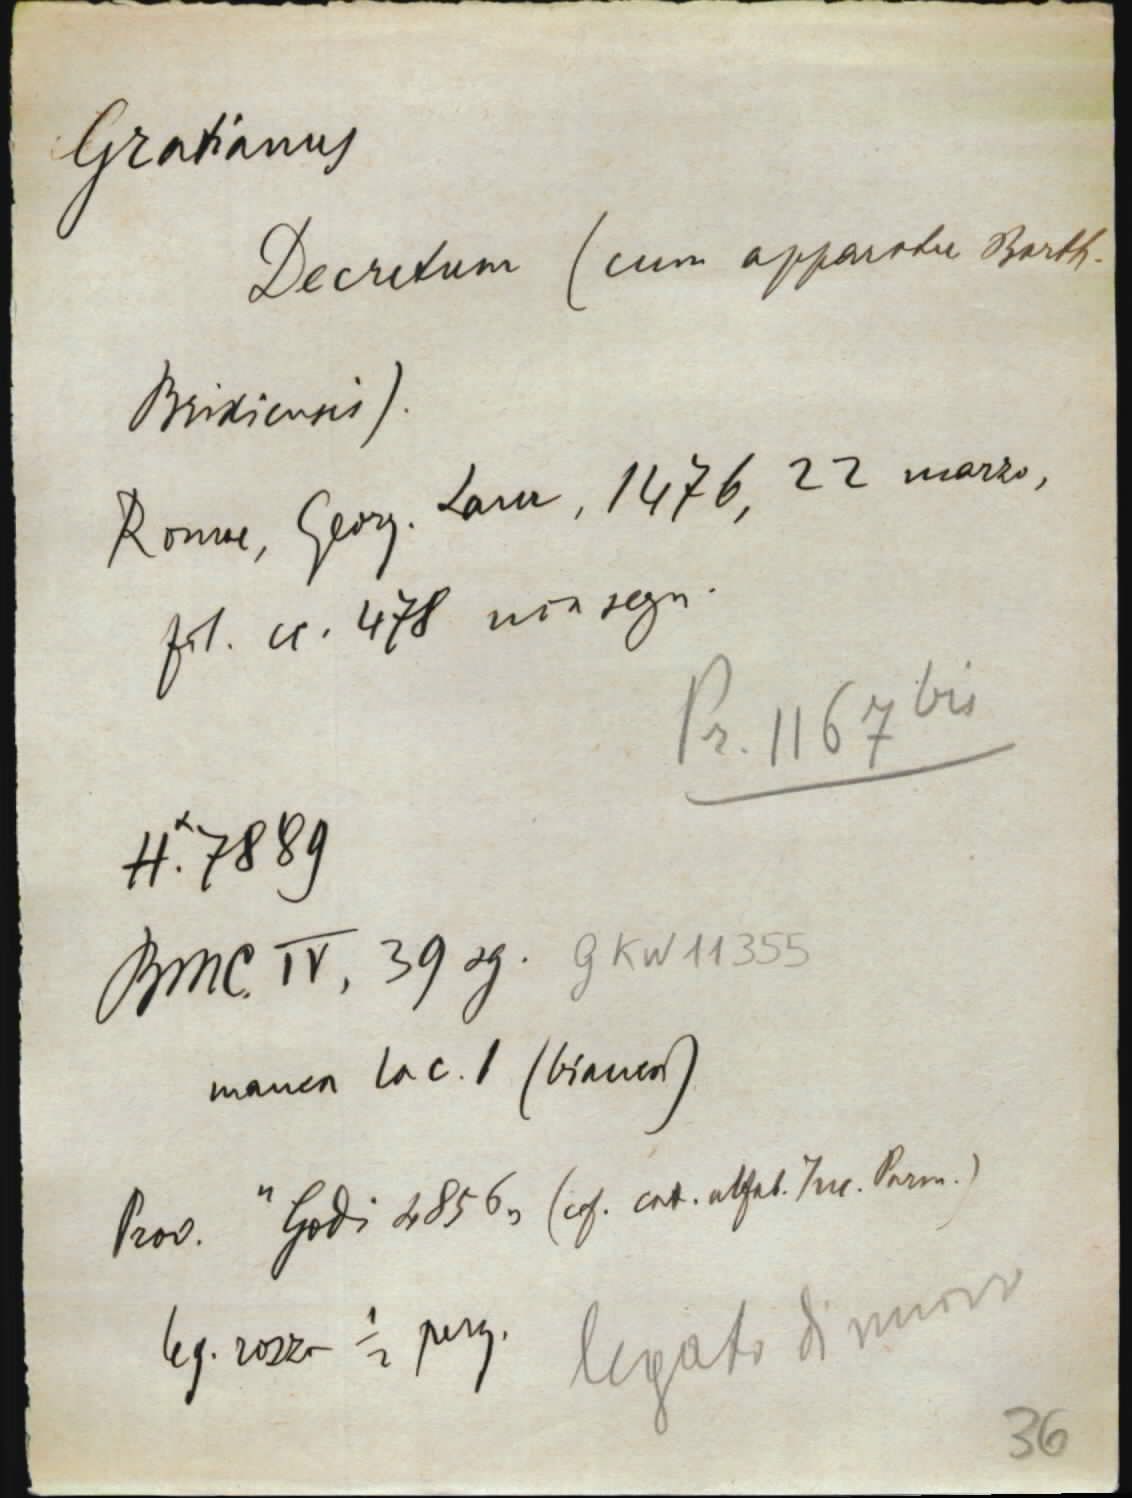 Gratianus
Decretum (cum apparatu Barth.
Brixiensis).
Romae, Georg. Laur, 1476, 22 marzo,
fol. cc. 478 non segn.
Pr. 1167 bis
H.x 7889
BMC. IV, 39 sg. GKW 11355
manca la c. 1 (bianca)
Prov. "Godi 1856" (cf. cat. alfab. Inc. Parm.)
leg. rozza ½ perg. legato di nuovo
36